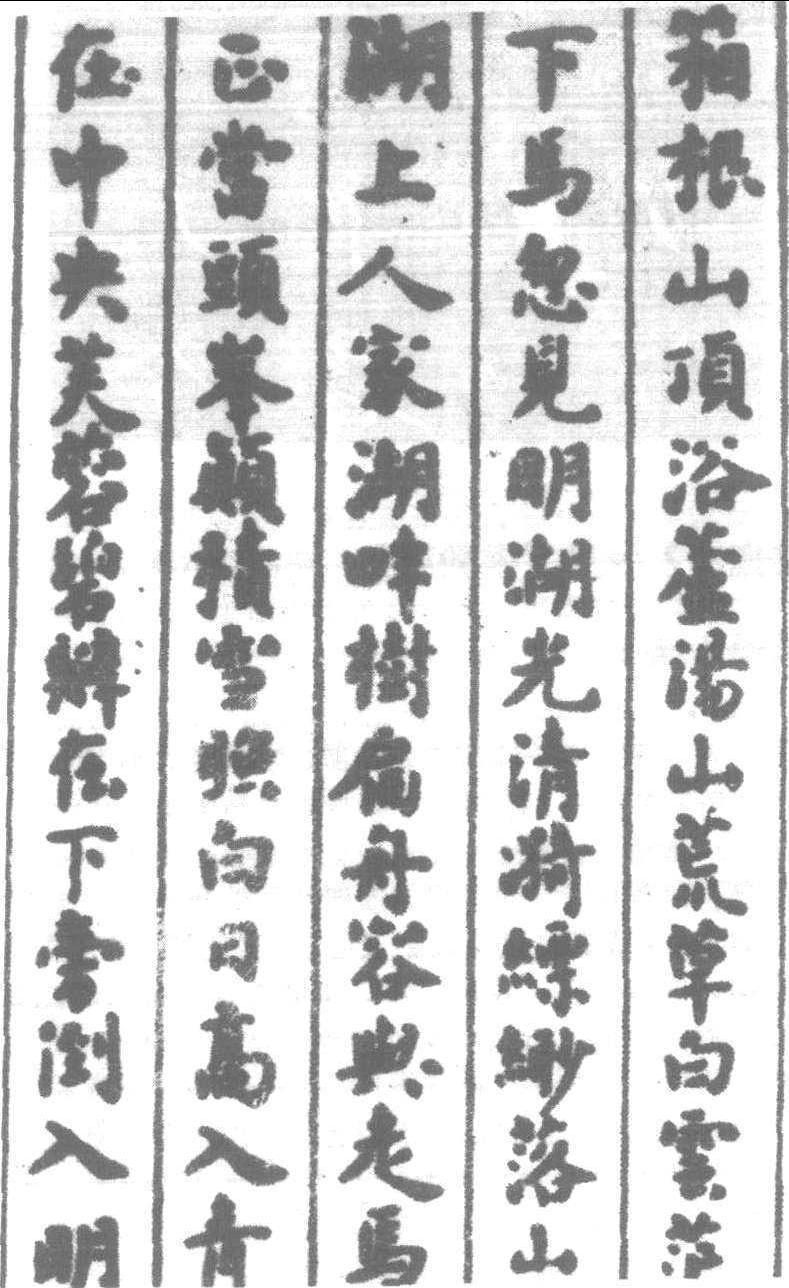 箱根山頂浴蘆湯山荒草白雲茫
下馬忽見明湖光清漪縹緲落山
湖上人家湖畔樹扁舟容與走馬
正當頭峯顛積雪照白日高入青
在中央芙蓉碧瓣在下旁倒入明